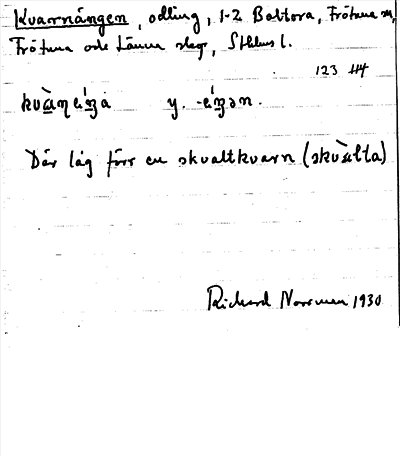 Kvarnängen, odling, 1-2 Baltora, Frötuna sn,
Frötuna och Länna skg, Sthlms l.
123 444
y.
Där låg förr en skvaltkvarn (skvàlta)
Richard Norrman 1930